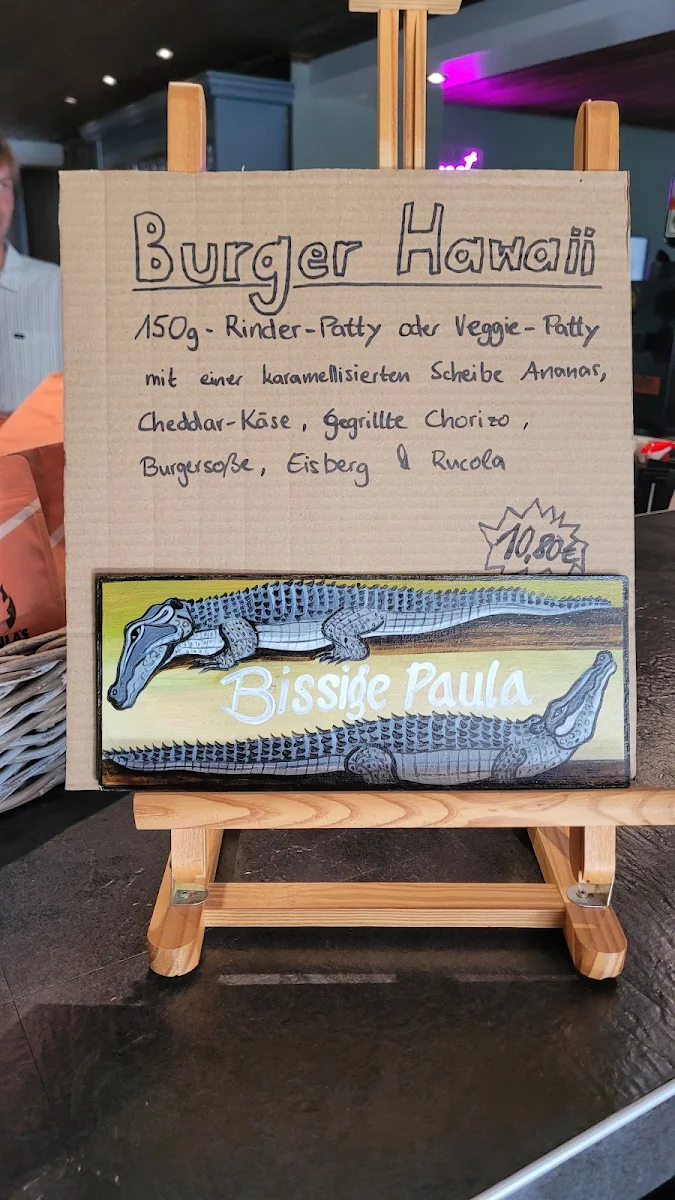 Burger Hawaii
150g- Rinder-Patty oder Veggie-Patty
mit einer karamellisierten Scheibe Ananas,
Cheddar-Käse, gegrillte Chorizo,
Burgersoße, Eisberg & Rucola
10,80€
Bissige Paula